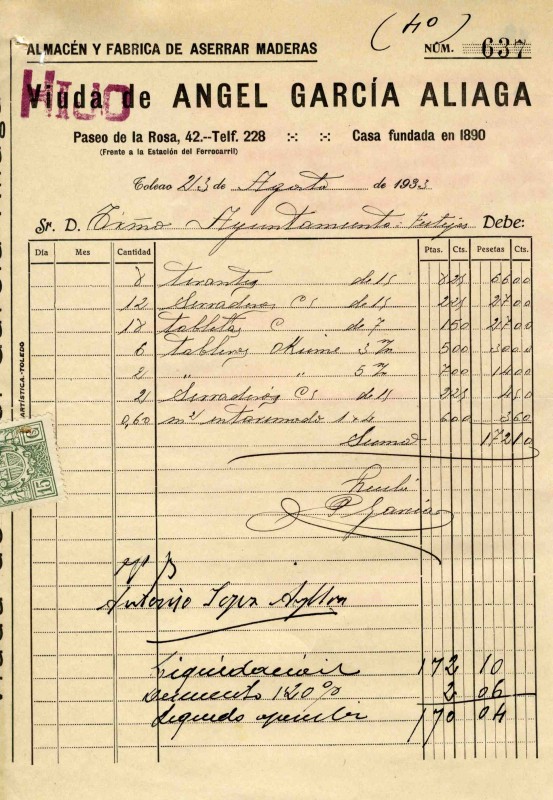 (40)
ALMACÉN Y FABRICA DE ASERRAR MADERAS
NÚM. 637
HIJO
Viuda de ANGEL GARCÍA ALIAGA
Paseo de la Rosa, 42.--Telf. 228 :-: :-: Casa fundada en 1890
(Frente a la Estación del Ferrocarril)
Toledo 23 de Agosto de 1933
Sr. D. Exmo Ayuntamiento: Festejos Debe:
Día Mes Cantidad Ptas. Cts. Pesetas Cts.
8 tirantes de 15 8 25 66 00
12 Serradizos CS de 15 2 25 27 00
18 tabletas C de 7 1 50 27 00
6 tableros Okume 3 m/m 5 00 30 00
2 " " 5 m/m 7 00 14 00
2 Serradizos CS de 15 2 25 4 50
0,60 m2 1 x 4 6 00 3 60
Suma 172 10
Recibí
P. García
Vº Bº
Antonio Lopez Ayllon
Liquidación 172 10
Descuento 1'20 % 2 06
Liquido 170 04
ARTÍSTICA.-TOLEDO
15